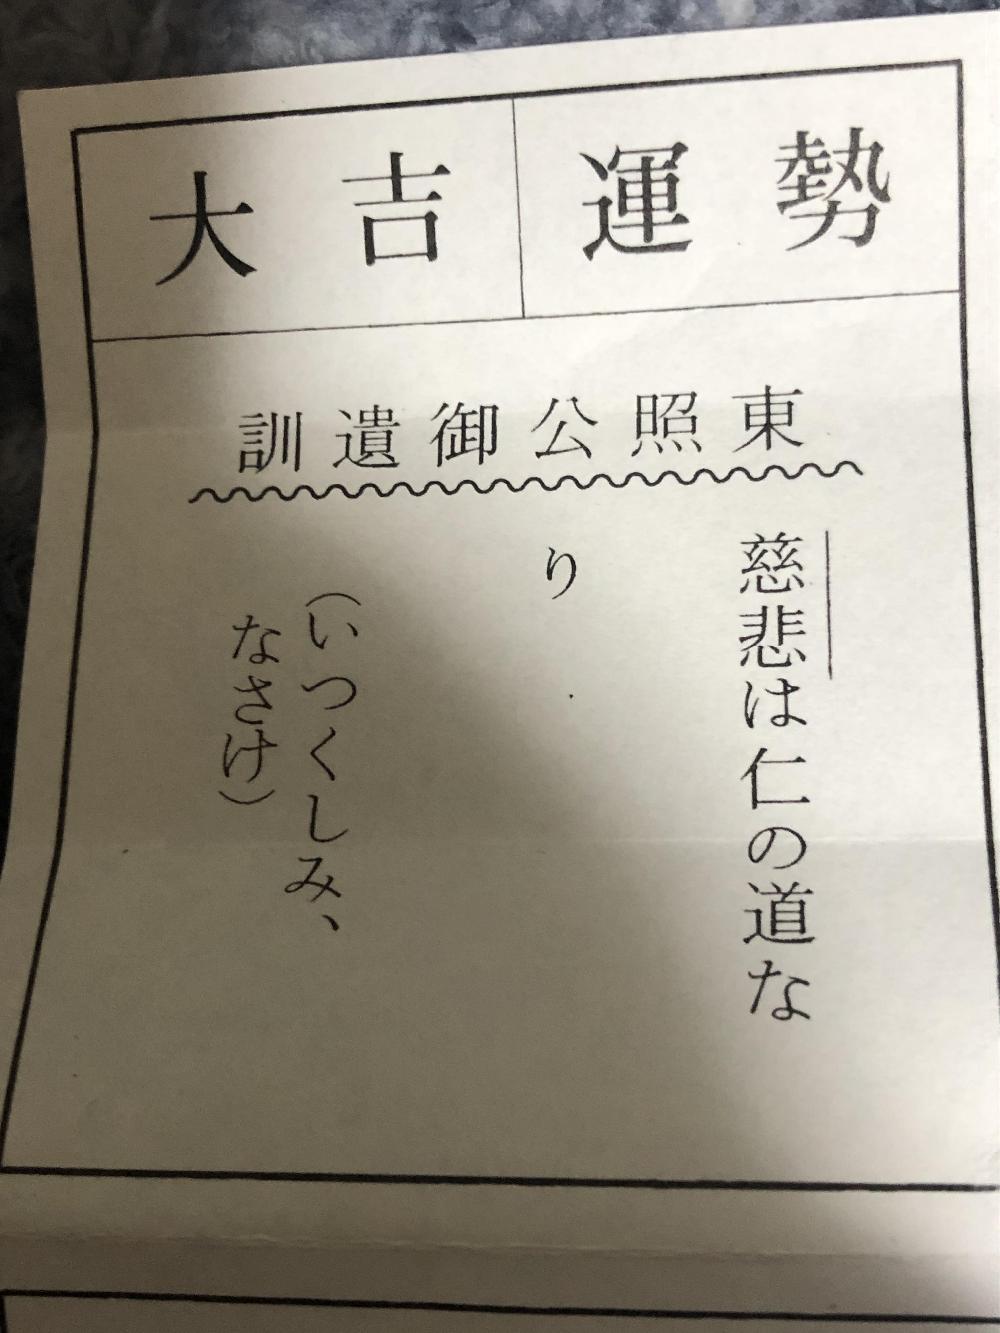 運勢
大吉
東照公御遺訓
慈悲は仁の道な
り
（いつくしみ、
なさけ）